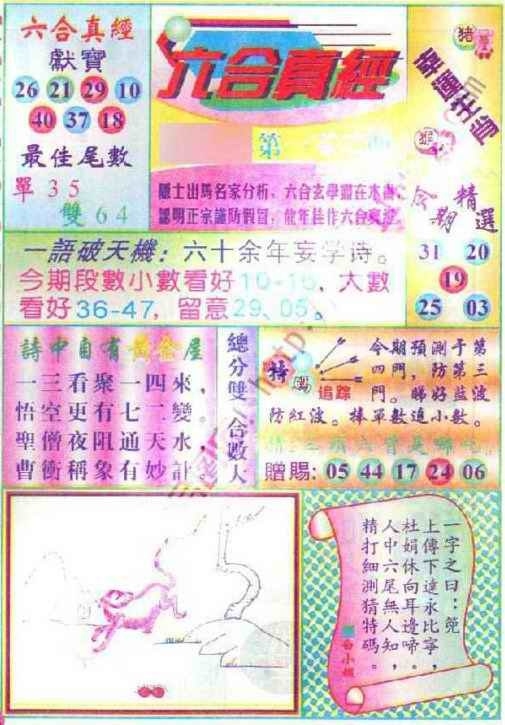 六合真經
獻寶
26 21 29 10
40 37 18
最佳尾數
單 3 5
雙 6 4
六合真經
第
猪
幸運生肖
隱士出馬名家分析，六合玄學盡在本
認明正宗謹防假冒，歷年佳作六合真經
今期精選
31 20
19
25 03
一語破天機：六十余年妄学诗。
今期段數小數看好10-15，大數
看好36-47，留意29、05。
詩中自有黃金屋
一三看聚一四來，
悟空更有七二變。
聖僧夜阻通天水，
曹衝稱象有妙計。
總分雙 合數大
特碼
追踪
今期預測于第
四門，防第三
門。睇好藍波
防紅波。擇單數追小數。
贈賜: 05 44 17 24 06
一字之曰：兔
上傳下達永比寧，
杜娟休向耳邊啼，
人中六尾無人知，
精打細測猜特碼。
白小姐